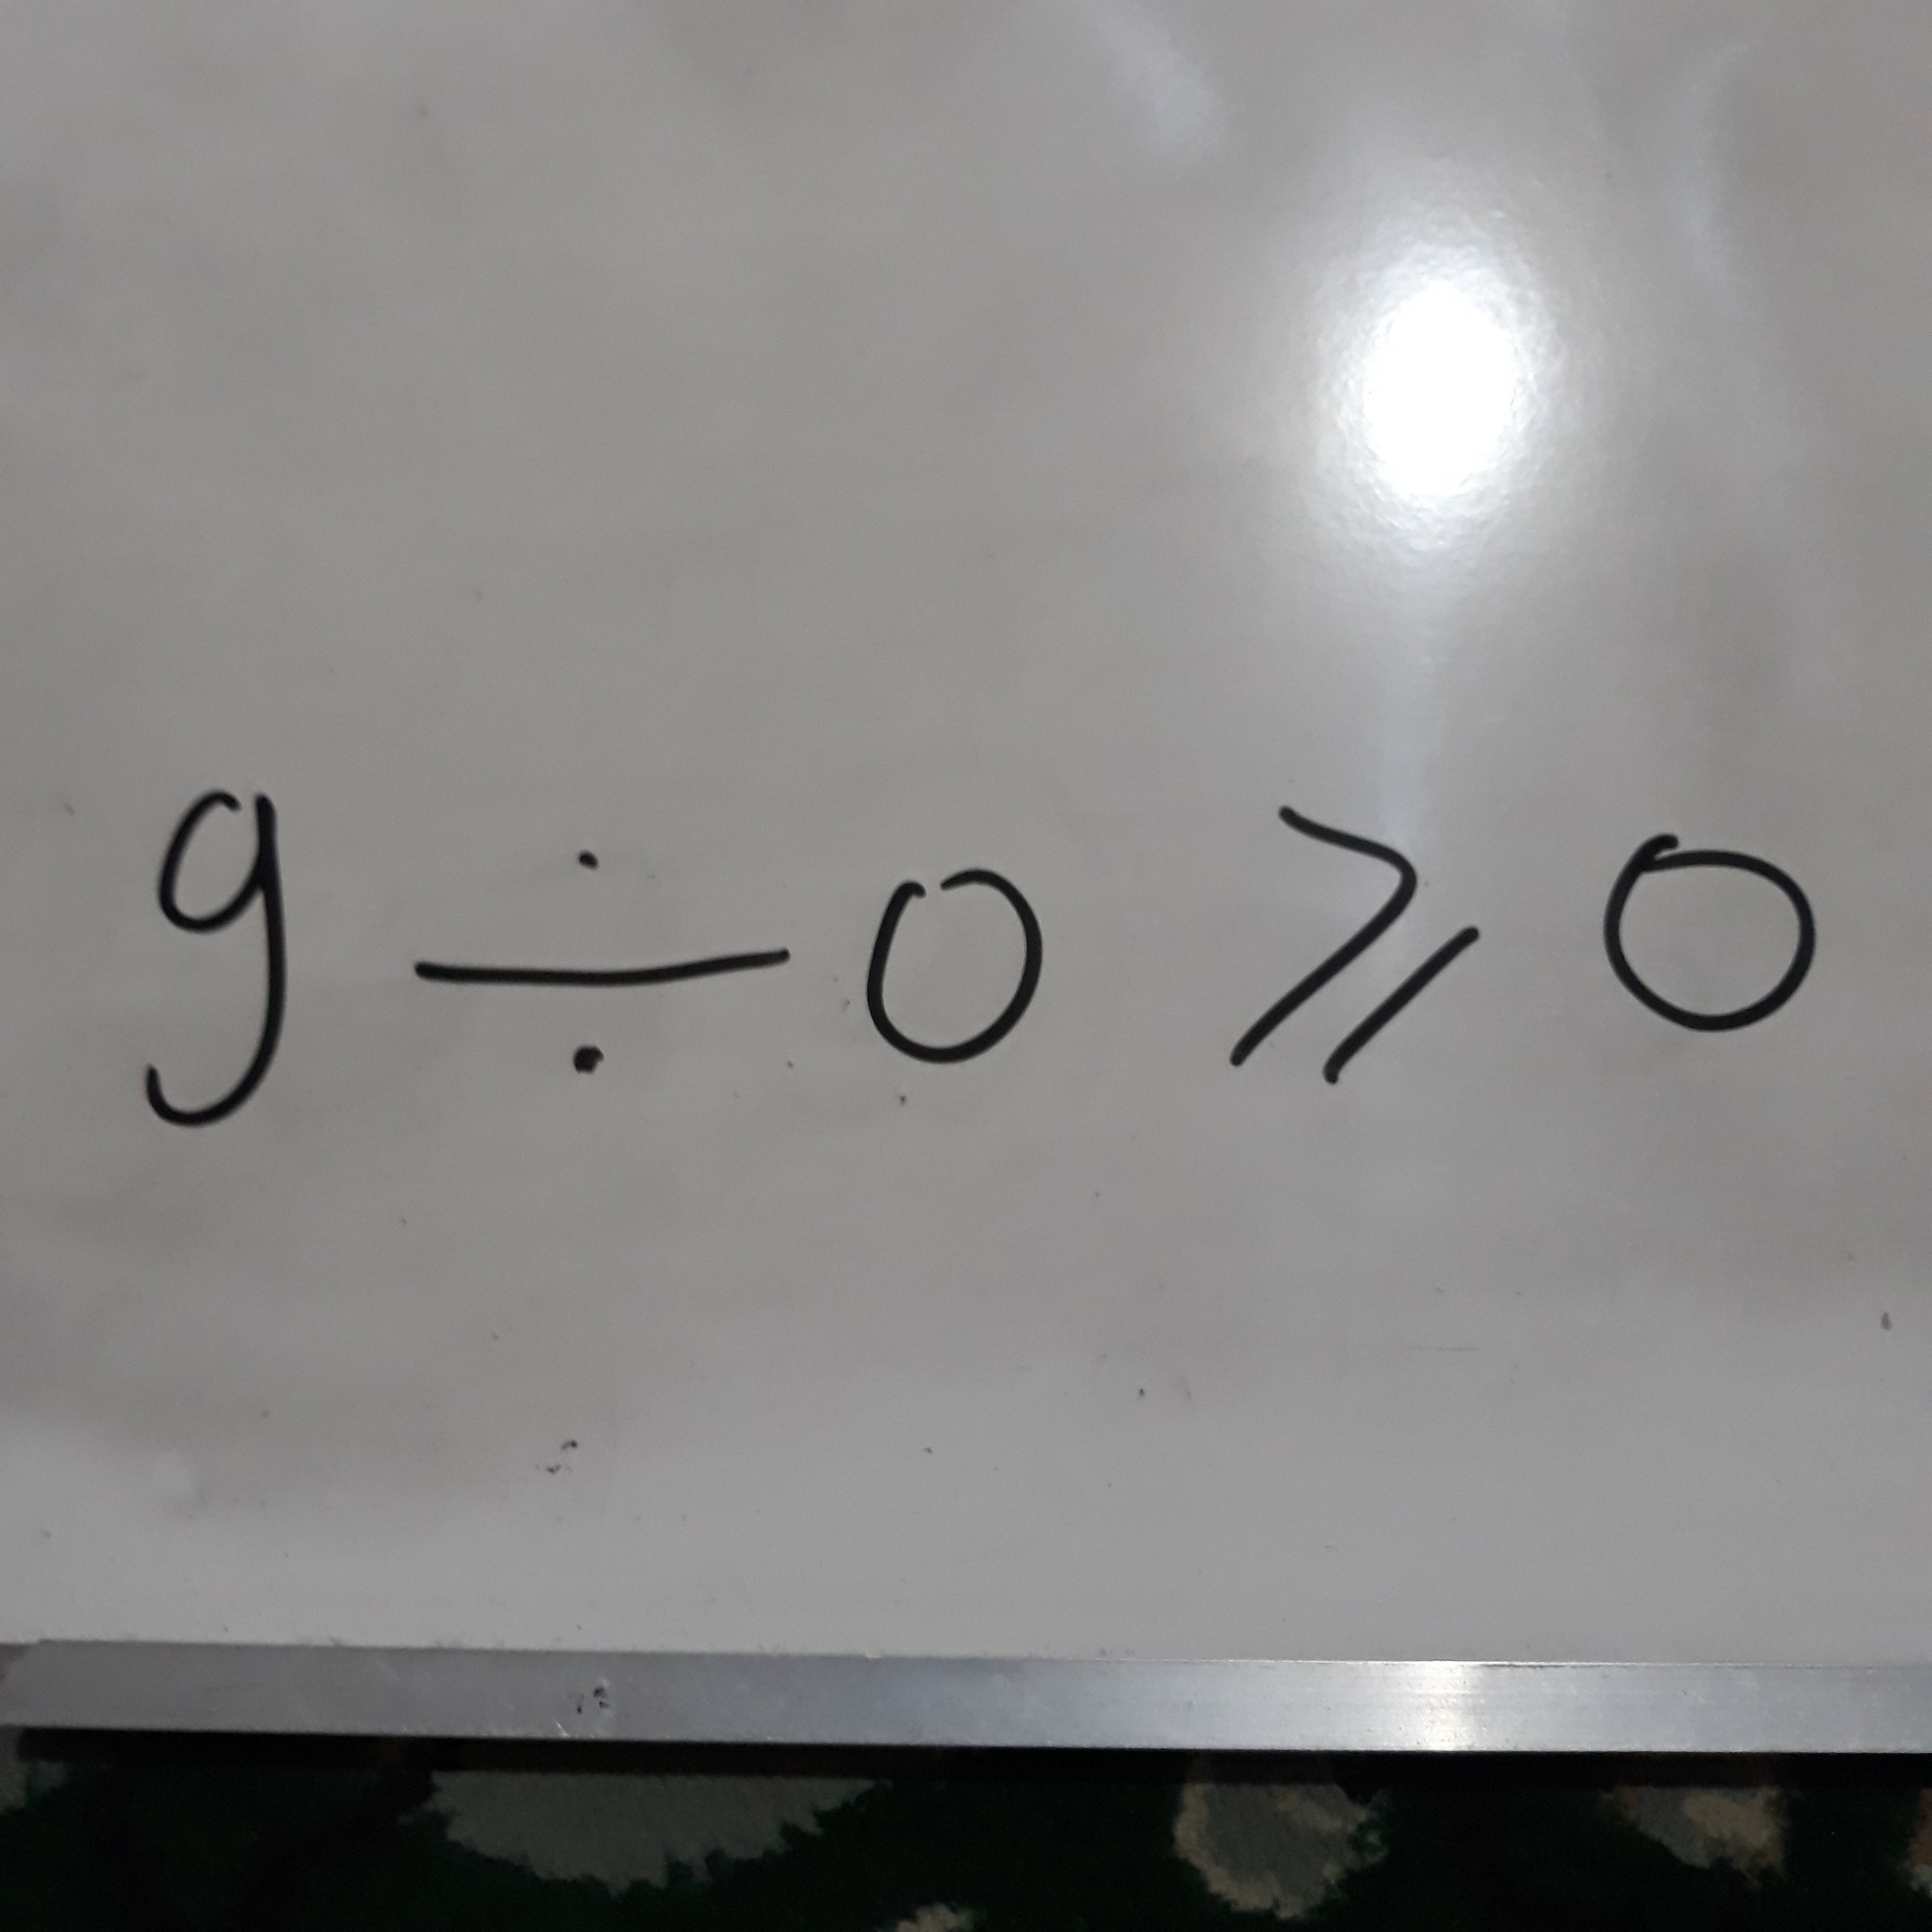 9 ÷ 0 ⩾ 0